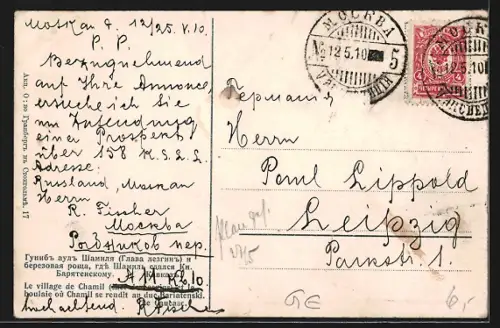 Moskau d. 12/25.V.10
P. P.
Bezugnehmend
auf Ihre Annonce
ersuche ich Sie
um Zusendung
einer Prospekt
über 158 K.S.L.L.
Adresse:
Russland, Moskau
Herrn
R. Fischer
Москва
пер.
Гунибъ аулъ Шамиля (Глава лезгинъ) и
березовая роща, гдѣ Шамиль сдался Кн.
Барятенскому. Кавказъ.
Le village de Chamil
boulaie où Chamil se rendit au duc Bariatenski.
Hochachtend. R. Fischer
Акц. О-во Гранбергъ въ Стокгольмѣ. 17
МОСКВА
12.5.10
5
МОСКВА
12.5.10
Германія
Herrn
Paul Lippold
Leipzig
Parkstr. 1.